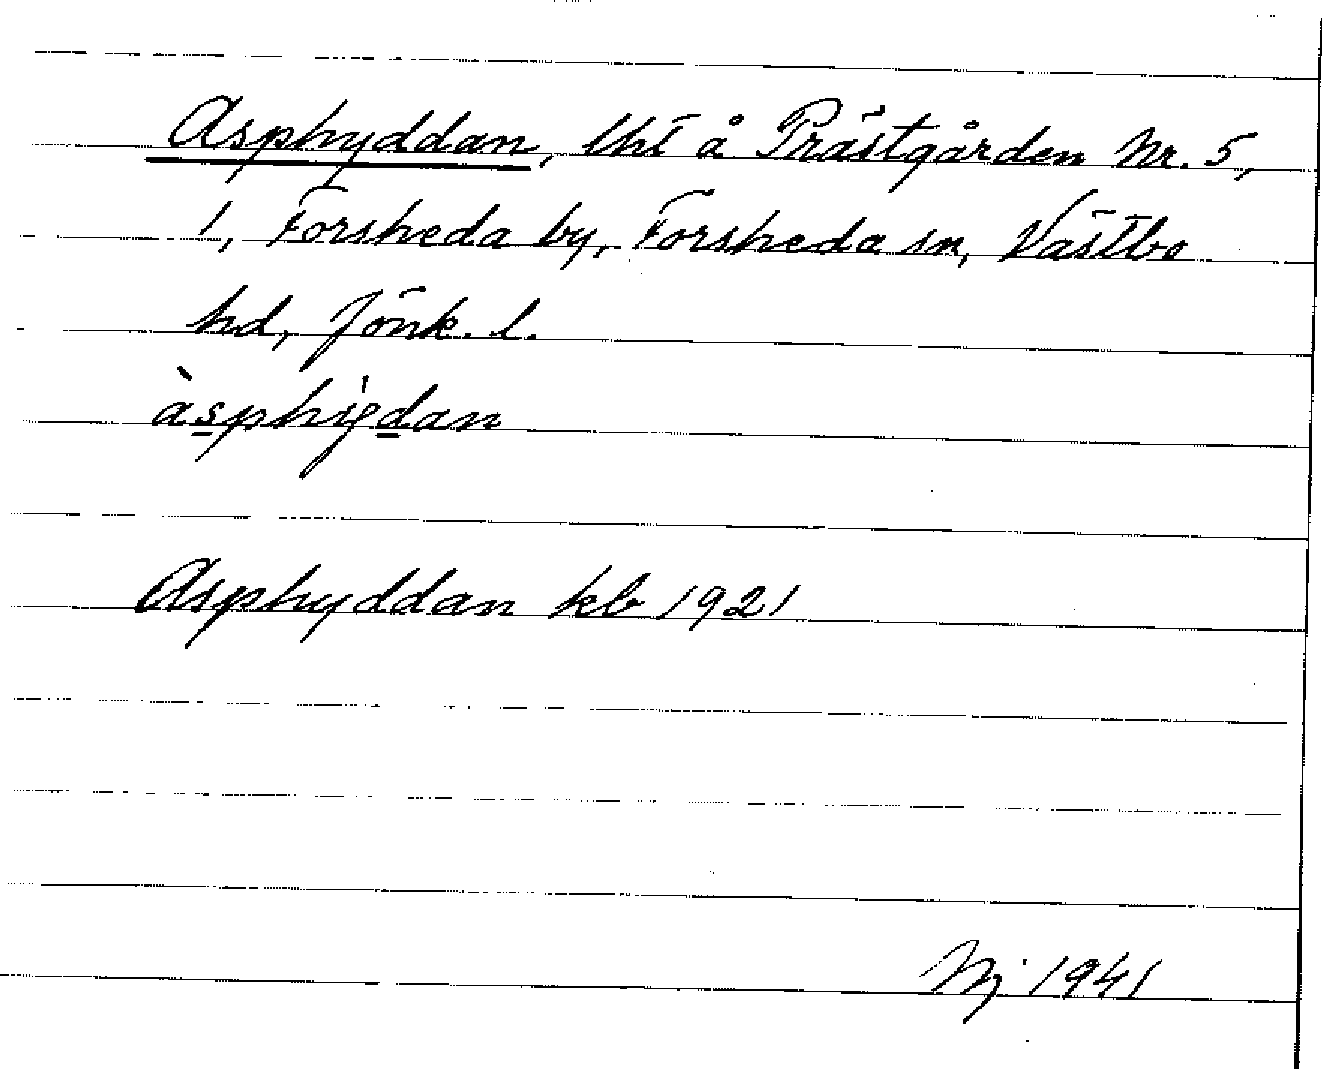 Asphyddan, lht å Prästgården Nr. 5,
1, Forsheda by, Forsheda sn, Västbo
hd, Jönk. l.
Asphyddan kb 1921
Nj 1941